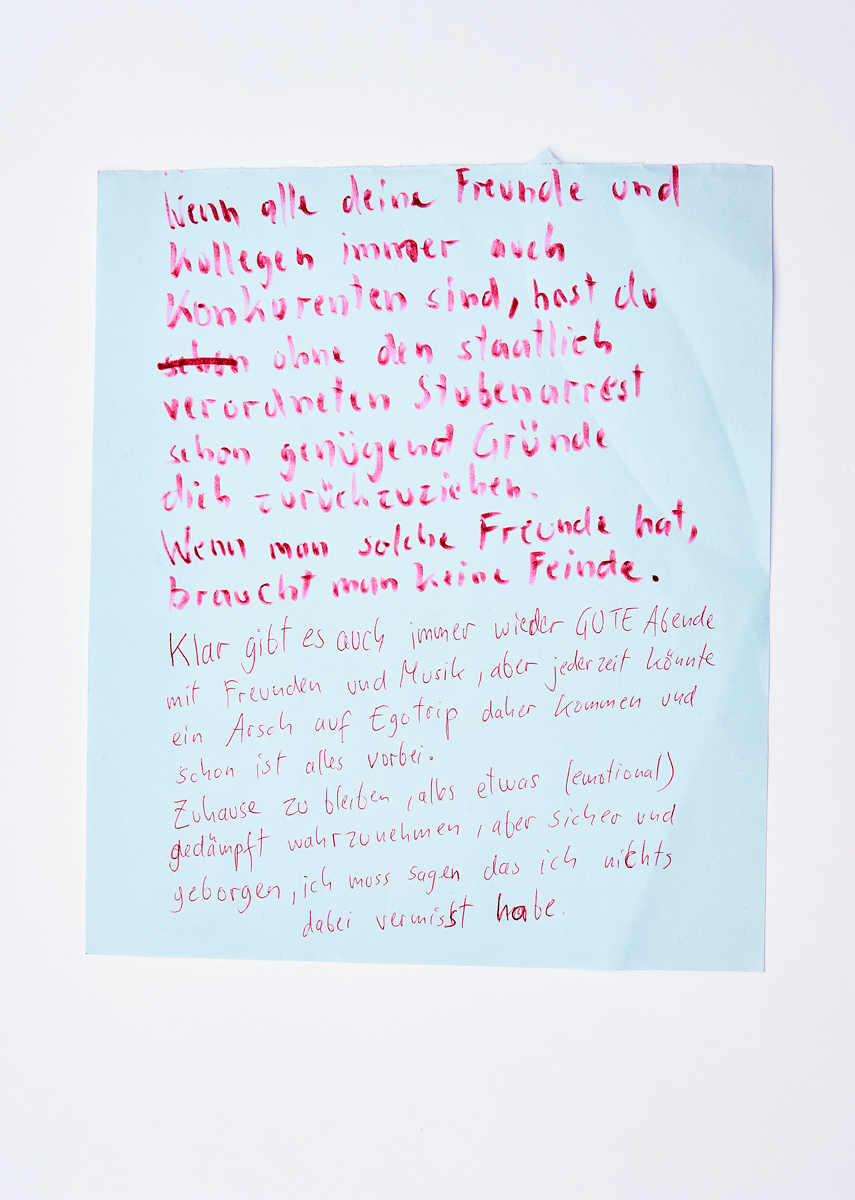 Wenn alle deine Freunde und
Kollegen immer auch
Konkurenten sind, hast du
schon ohne den staatlich
verordneten Stubenarrest
schon genügend Gründe
dich zurückzuziehen.
Wenn man solche Freunde hat,
braucht man keine Feinde.
Klar gibt es auch immer wieder GUTE Abende
mit Freunden und Musik, aber jederzeit könnte
ein Arsch auf Egotrip daher kommen und
schon ist alles vorbei.
Zuhause zu bleiben, alles etwas (emotional)
gedämpft wahrzunehmen, aber sicher und
geborgen, ich muss sagen das ich nichts
dabei vermisst habe.